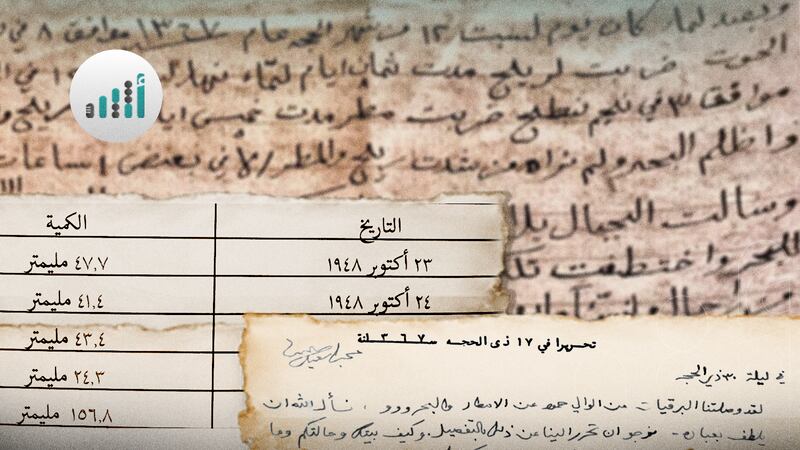 وبعد لما كان يوم لسبت ١٢ من شهر الحجه عام ١٣٦٧ موافق ٨ في
الحوت ضربت لريلح مدت ثمان ايام لتماء نهار
موافق ٣ في نجم لنطلح ضربت مطر مدت خمسى ايا
واظلم البحر ولم نراه من شدت ريلح والمطر الافي بعض ساعات
وسالت الجبال بلا
للبحر واختطفت تلك
أثير
التاريخ الكمية
٢٣ أكتوبر ١٩٤٨ ٤٧,٧ مليمتر
٢٤ أكتوبر ١٩٤٨ ٤١,٤ مليمتر
٤٣,٤ مليمتر
٢٤,٣ مليمتر
١٥٦,٨ مليمتر
تحريرا في ١٧ ذى الحجه سنة ١٣٦٧
في ليلة ٣٠ ذي الحجه
لقد وصلتنا البرقيات من الوالي حمد عن الامطار والبحر ودو ، نسأل الله ان
يلطف بعباده - موجو ان تحرر الينا عن ذلك بالتفصيل. وكيف بيتك وحالتكم وما